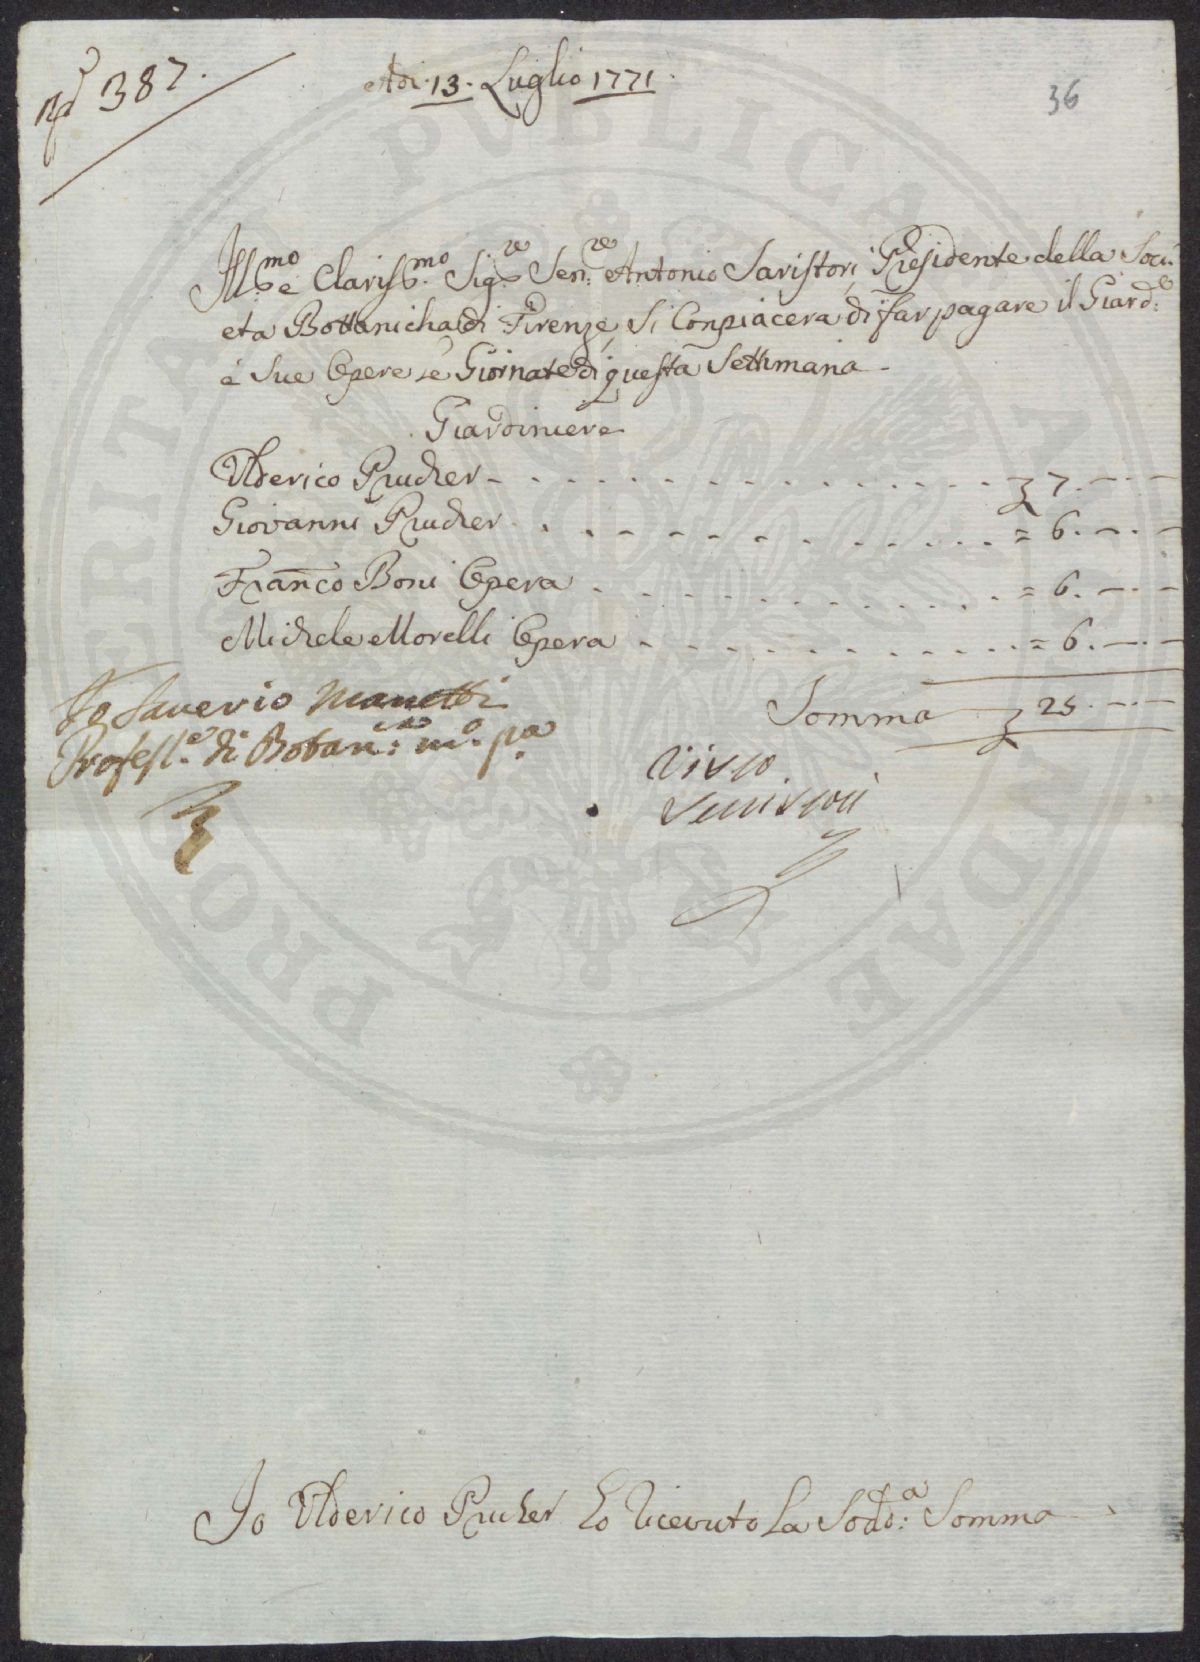 No 387.
Adi 13. Luglio 1771.
36
Ill.mo e Clariss.mo Sig.re Sen.re Antonio Saristori Presidente della Soci
età Bottanicha di Firenze, Si Conpiacera di far pagare il Giard.e
e Sue Opere le Giornate di questa Settimana
Giardiniere
Ulderico Prucher - - - 7. — . —
Giovanni Prucher - - - = 6. — . —
Fran.co Boni Opera - - - = 6. — . —
Michele Morelli Opera - - - = 6. — . —
Somma 25. — . —
Io Saverio Manetti
Profess.e di Botan.ca m.o p.a
Visto
Io Ulderico Prucher ho Ricevuto La Sod.a Somma
PROSPERITATI PUBLICAE AUGENDAE